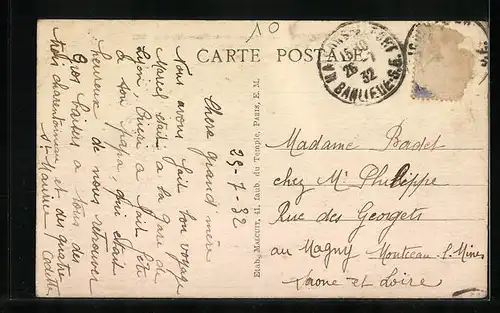 10
CARTE POSTALE
MAISONS-ALFORT
15 30
26 - 7
32
BANLIEUE-S.E.
25-7-32
Chère grand'mère
Nous avons fait bon voyage
Marcel était à la gare de
Lyon, Coco a fait fête
à son papa, qui était
heureux de nous retrouver
Gros baisers à tous des
trois charentonneau et des quatre
St Maurice Odette
Etab. MALCUIT, 41, faub. du Temple, PARIS, E. M.
Madame Badet
chez Mr Philippe
Rue des Georgets
au Magny Montceau l. Mines
Saone et Loire